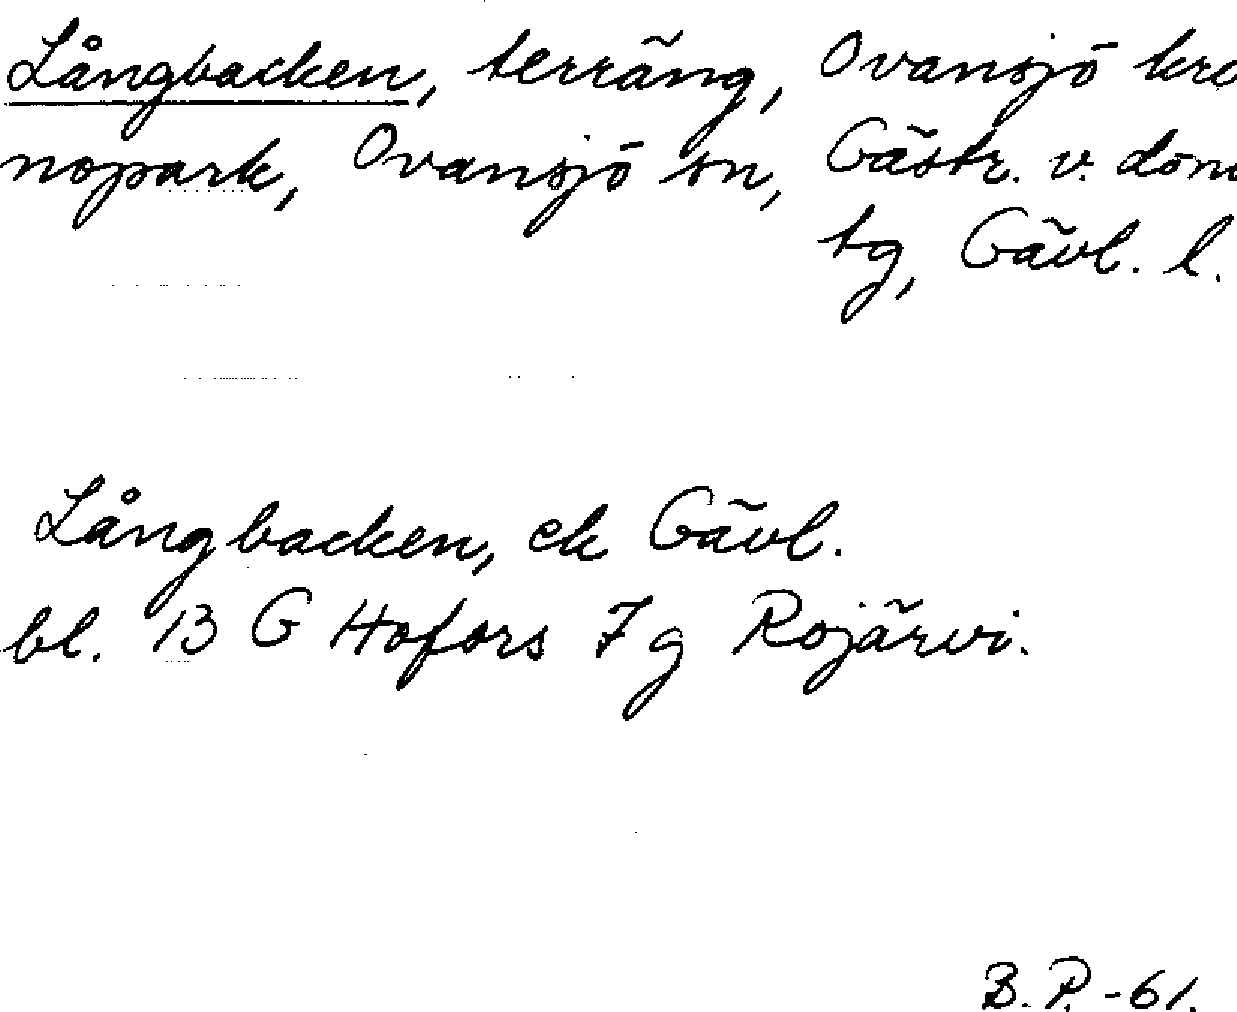 Långbacken, terräng, Ovansjö kro
nopark, Ovansjö sn, Gästr. v. dom
tg, Gävl. l.
Långbacken, ek Gävl.
bl. 13 G Hofors 7 g Rojärvi.
B. P. -61.